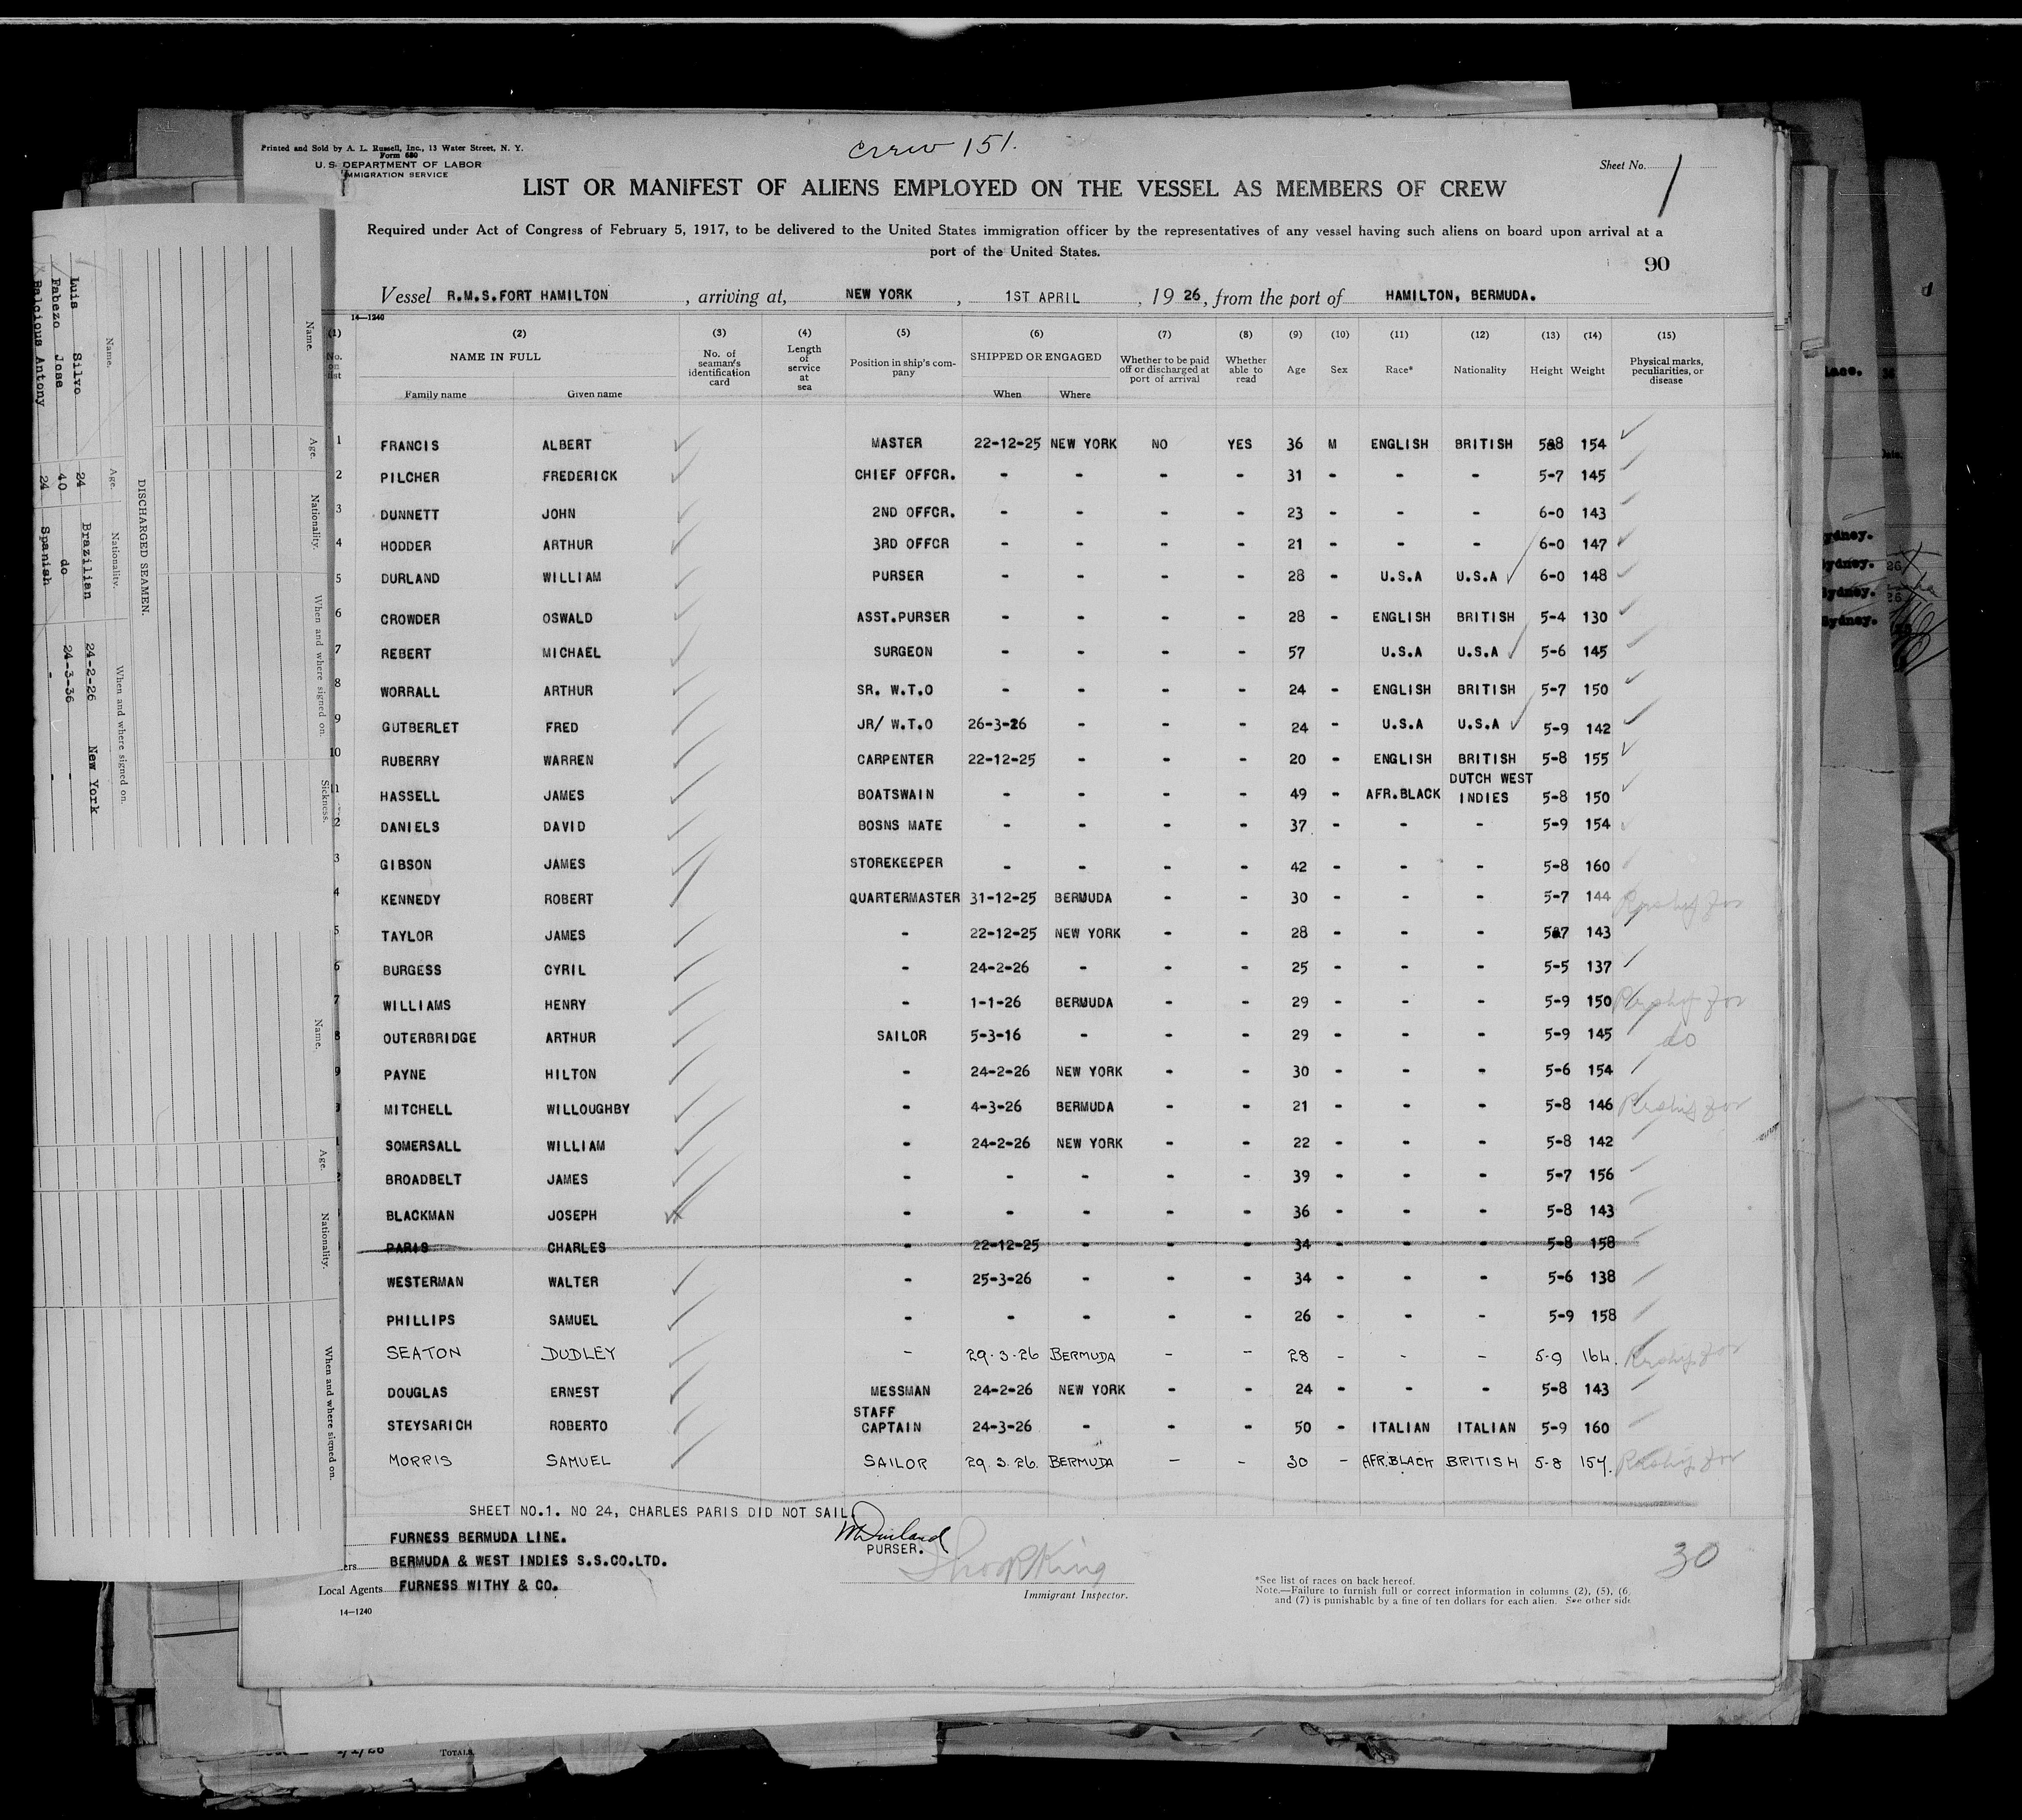 crew 151.
Printed and Sold by A. L. Russell, Inc., 13 Water Street, N. Y.
Form 680
U. S. DEPARTMENT OF LABOR
IMMIGRATION SERVICE
Sheet No. 1
LIST OR MANIFEST OF ALIENS EMPLOYED ON THE VESSEL AS MEMBERS OF CREW
Required under Act of Congress of February 5, 1917, to be delivered to the United States immigration officer by the representatives of any vessel having such aliens on board upon arrival at a
port of the United States.
90
Vessel R.M.S.FORT HAMILTON , arriving at, NEW YORK , 1ST APRIL , 19 26, from the port of HAMILTON, BERMUDA.
14—1240
(1) (2) (3) (4) (5) (6) (7) (8) (9) (10) (11) (12) (13) (14) (15)
No. on list NAME IN FULL No. of seaman's identification card Length of service at sea Position in ship's company SHIPPED OR ENGAGED Whether to be paid off or discharged at port of arrival Whether able to read Age Sex Race* Nationality Height Weight Physical marks, peculiarities, or disease
Family name Given name When Where
1 FRANCIS ALBERT MASTER 22-12-25 NEW YORK NO YES 36 M ENGLISH BRITISH 5&8 154
2 PILCHER FREDERICK CHIEF OFFCR. - - - - 31 - - - 5-7 145
3 DUNNETT JOHN 2ND OFFCR. - - - - 23 - - - 6-0 143
4 HODDER ARTHUR 3RD OFFCR - - - - 21 - - - 6-0 147
5 DURLAND WILLIAM PURSER - - - - 28 - U.S.A U.S.A 6-0 148
6 CROWDER OSWALD ASST.PURSER - - - - 28 - ENGLISH BRITISH 5-4 130
7 REBERT MICHAEL SURGEON - - - - 57 U.S.A U.S.A 5-6 145
8 WORRALL ARTHUR SR. W.T.O - - - - 24 - ENGLISH BRITISH 5-7 150
9 GUTBERLET FRED JR/ W.T.O 26-3-26 - - - 24 - U.S.A U.S.A 5-9 142
10 RUBERRY WARREN CARPENTER 22-12-25 - - - 20 - ENGLISH BRITISH 5-8 155
11 HASSELL JAMES BOATSWAIN - - - - 49 - AFR.BLACK DUTCH WEST INDIES 5-8 150
2 DANIELS DAVID BOSNS MATE - - - - 37 - - - 5-9 154
3 GIBSON JAMES STOREKEEPER - - - - 42 - - - 5-8 160
4 KENNEDY ROBERT QUARTERMASTER 31-12-25 BERMUDA - - 30 - - - 5-7 144
5 TAYLOR JAMES - 22-12-25 NEW YORK - - 28 - - - 5&7 143
6 BURGESS CYRIL - 24-2-26 - - - 25 - - - 5-5 137
7 WILLIAMS HENRY - 1-1-26 BERMUDA - - 29 - - - 5-9 150
8 OUTERBRIDGE ARTHUR SAILOR 5-3-16 - - - 29 - - - 5-9 145 do
9 PAYNE HILTON - 24-2-26 NEW YORK - - 30 - - - 5-6 154
MITCHELL WILLOUGHBY - 4-3-26 BERMUDA - - 21 - - - 5-8 146
SOMERSALL WILLIAM - 24-2-26 NEW YORK - - 22 - - - 5-8 142
BROADBELT JAMES - - - - - 39 - - - 5-7 156
BLACKMAN JOSEPH - - - - - 36 - - - 5-8 143
PARIS CHARLES - 22-12-25 - - - 34 - - - 5-8 158
WESTERMAN WALTER - 25-3-26 - - - 34 - - - 5-6 138
PHILLIPS SAMUEL - - - - - 26 - - - 5-9 158
SEATON DUDLEY - 29-3-26 BERMUDA - - 28 - - - 5-9 164.
DOUGLAS ERNEST MESSMAN 24-2-26 NEW YORK - - 24 - - - 5-8 143
STEYSARICH ROBERTO STAFF CAPTAIN 24-3-26 - - - 50 - ITALIAN ITALIAN 5-9 160
MORRIS SAMUEL SAILOR 29.3.26. BERMUDA - - 30 - AFR.BLACK BRITISH 5-8 154.
SHEET NO.1. NO 24, CHARLES PARIS DID NOT SAIL.
FURNESS BERMUDA LINE.
WDurland
PURSER.
30
ers BERMUDA & WEST INDIES S.S.CO.LTD.
Local Agents FURNESS WITHY & CO.
Immigrant Inspector.
*See list of races on back hereof.
Note.—Failure to furnish full or correct information in columns (2), (5), (6
and (7) is punishable by a fine of ten dollars for each alien. See other side
14—1240
DISCHARGED SEAMEN.
Name. Age. Nationality. When and where signed on.
Luis Silvo 24 Brazilian 24-2-26 New York
Fabezo Jose 40 do 24-3-36 -
Balcious Antony 24 Spanish - -
Name. Age. Nationality. When and where signed on. Sickness.
Name. Age. Nationality. When and where signed on.
ydney.
Sydney. 26
Sydney. 26
Sydney.
1/1/26 TOTALS